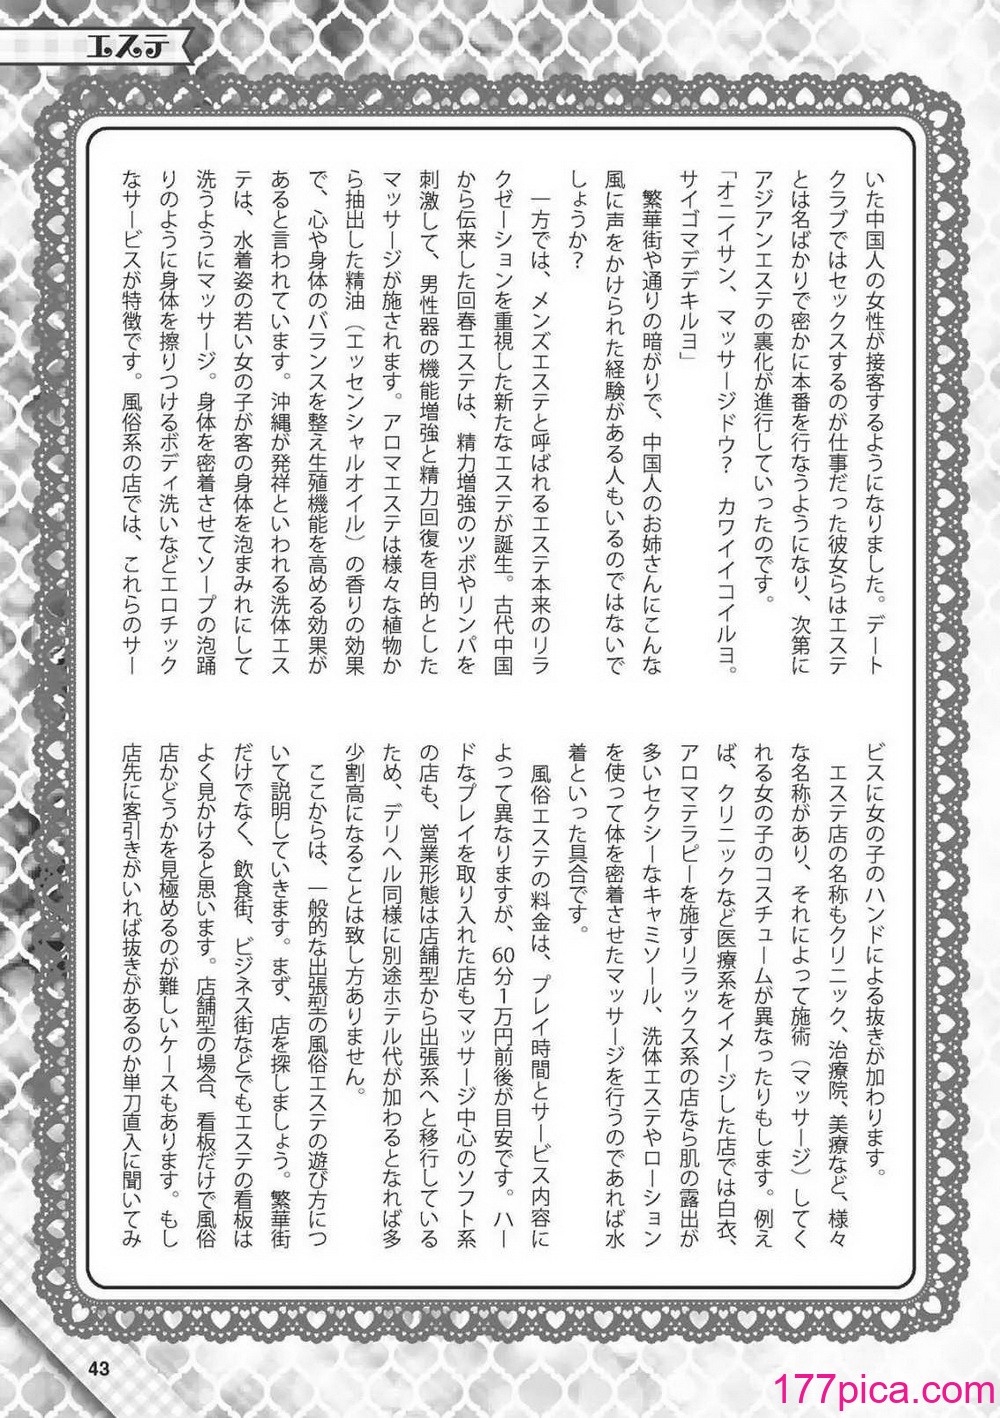 エステ
いた中国人の女性が接客するようになりました。デート
クラブではセックスするのが仕事だった彼女らはエステ
とは名ばかりで密かに本番を行なうようになり、次第に
アジアンエステの裏化が進行していったのです。
「オニイサン、マッサージドウ？　カワイイコイルヨ。
サイゴマデデキルヨ」
　繁華街や通りの暗がりで、中国人のお姉さんにこんな
風に声をかけられた経験がある人もいるのではないで
しょうか？
　一方では、メンズエステと呼ばれるエステ本来のリラ
クゼーションを重視した新たなエステが誕生。古代中国
から伝来した回春エステは、精力増強のツボやリンパを
刺激して、男性器の機能増強と精力回復を目的とした
マッサージが施されます。アロマエステは様々な植物か
ら抽出した精油（エッセンシャルオイル）の香りの効果
で、心や身体のバランスを整え生殖機能を高める効果が
あると言われています。沖縄が発祥といわれる洗体エス
テは、水着姿の若い女の子が客の身体を泡まみれにして
洗うようにマッサージ。身体を密着させてソープの泡踊
りのように身体を擦りつけるボディ洗いなどエロチック
なサービスが特徴です。風俗系の店では、これらのサー
ビスに女の子のハンドによる抜きが加わります。
　エステ店の名称もクリニック、治療院、美療など、様々
な名称があり、それによって施術（マッサージ）してく
れる女の子のコスチュームが異なったりもします。例え
ば、クリニックなど医療系をイメージした店では白衣、
アロマテラピーを施すリラックス系の店なら肌の露出が
多いセクシーなキャミソール、洗体エステやローション
を使って体を密着させたマッサージを行うのであれば水
着といった具合です。
　風俗エステの料金は、プレイ時間とサービス内容に
よって異なりますが、60分1万円前後が目安です。ハー
ドなプレイを取り入れた店もマッサージ中心のソフト系
の店も、営業形態は店舗型から出張系へと移行している
ため、デリヘル同様に別途ホテル代が加わるとなれば多
少割高になることは致し方ありません。
　ここからは、一般的な出張型の風俗エステの遊び方につ
いて説明していきます。まず、店を探しましょう。繁華街
だけでなく、飲食街、ビジネス街などでもエステの看板は
よく見かけると思います。店舗型の場合、看板だけで風俗
店かどうかを見極めるのが難しいケースもあります。もし
店先に客引きがいれば抜きがあるのか単刀直入に聞いてみ
43
177pica.com